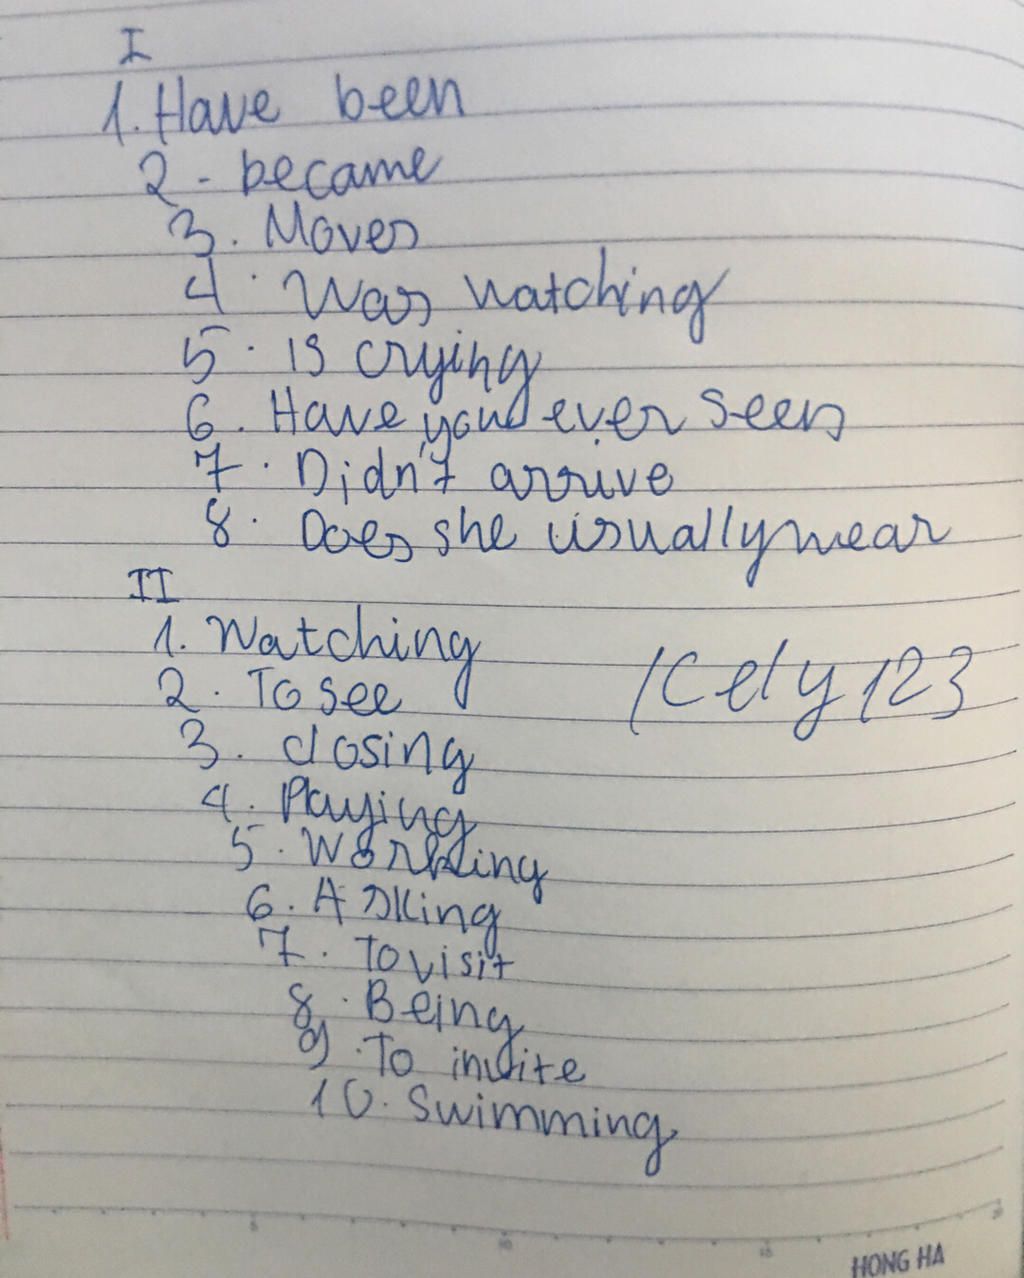 I
1. Have been
2 - became
3. Moves
4. Was watching
5. is crying
6. Have you ever seen
7. Didn't arrive
8. Does she usually wear
II
1. Watching
2. To see
3. closing
4. Playing
5. Working
6. Asking
7. To visit
8. Being
9. To invite
10. Swimming
ICely123
5
10
15
20
HONG HA